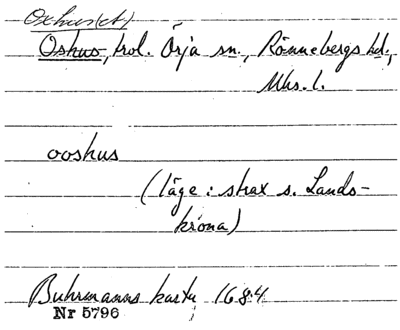 Oxhus(et)
Oshus, trol. Örja sn., Rönnebergs hd.,
Mhs. l.
ooshus
(läge: strax s. Lands-
krona)
Buhrmanns karta 1684
Nr 5796